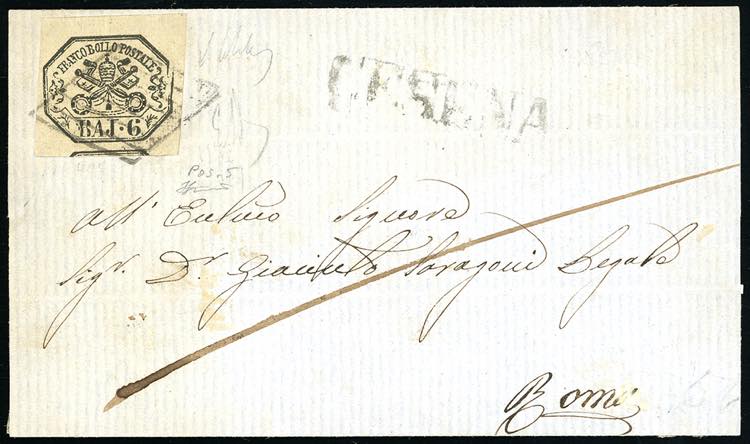 FRANCO BOLLO POSTALE
BAJ. 6
CESENA
POS. 5
all'
Signore
Sigr. Dr. Giacinto Saragoni Legale
Roma